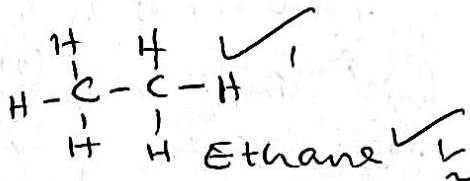 H H
H - C - C - H ✓ 1
H H Ethane ✓